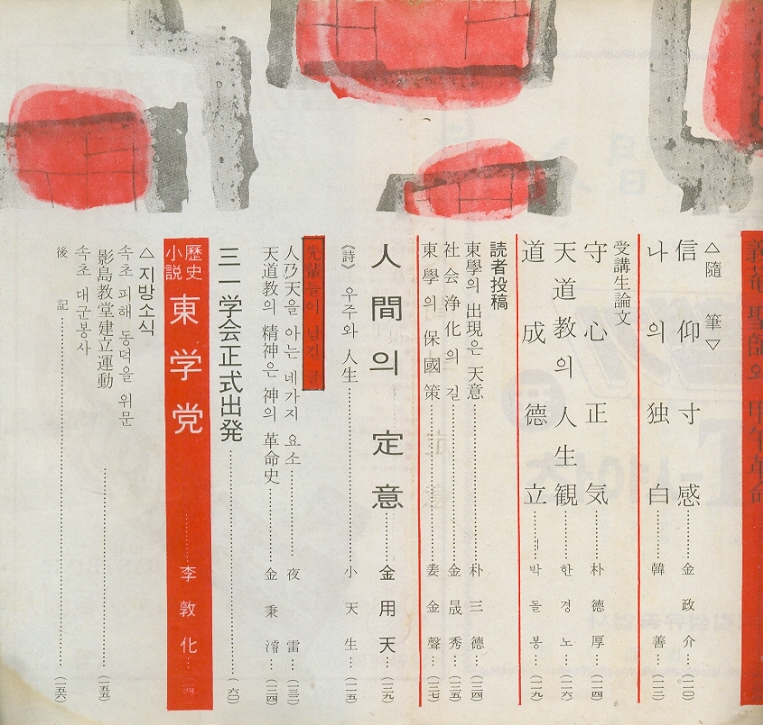 △隨 筆▽
信仰寸感……金政介…(一二〇)
나의 独白……韓 善…(一二三)
受講生論文
守心正気……朴德厚…(一二四)
天道教의 人生観……한경노…(一二六)
道成德立……박돌봉…(一二九)
読者投稿
東學의 出現은 天意……朴三德…(一二四)
社会浄化의 길……金晟秀…(一二五)
東學의 保國策……姜金聲…(一二七)
人間의 定意……金用天…(一二九)
(詩) 우주와 人生……小天生…(一一五)
先輩들이 남긴 글
人乃天을 아는 네가지 요소……夜雷…(一三二)
天道教의 精神은 神의 革命史……金秉濬…(一三四)
三一学会正式出発……(六〇)
歷史小説 東学党……李敦化…
△지방소식
속초 피해 동덕을 위문
影島教堂建立運動……(一五五)
속초 대군봉사
後記……(一五六)